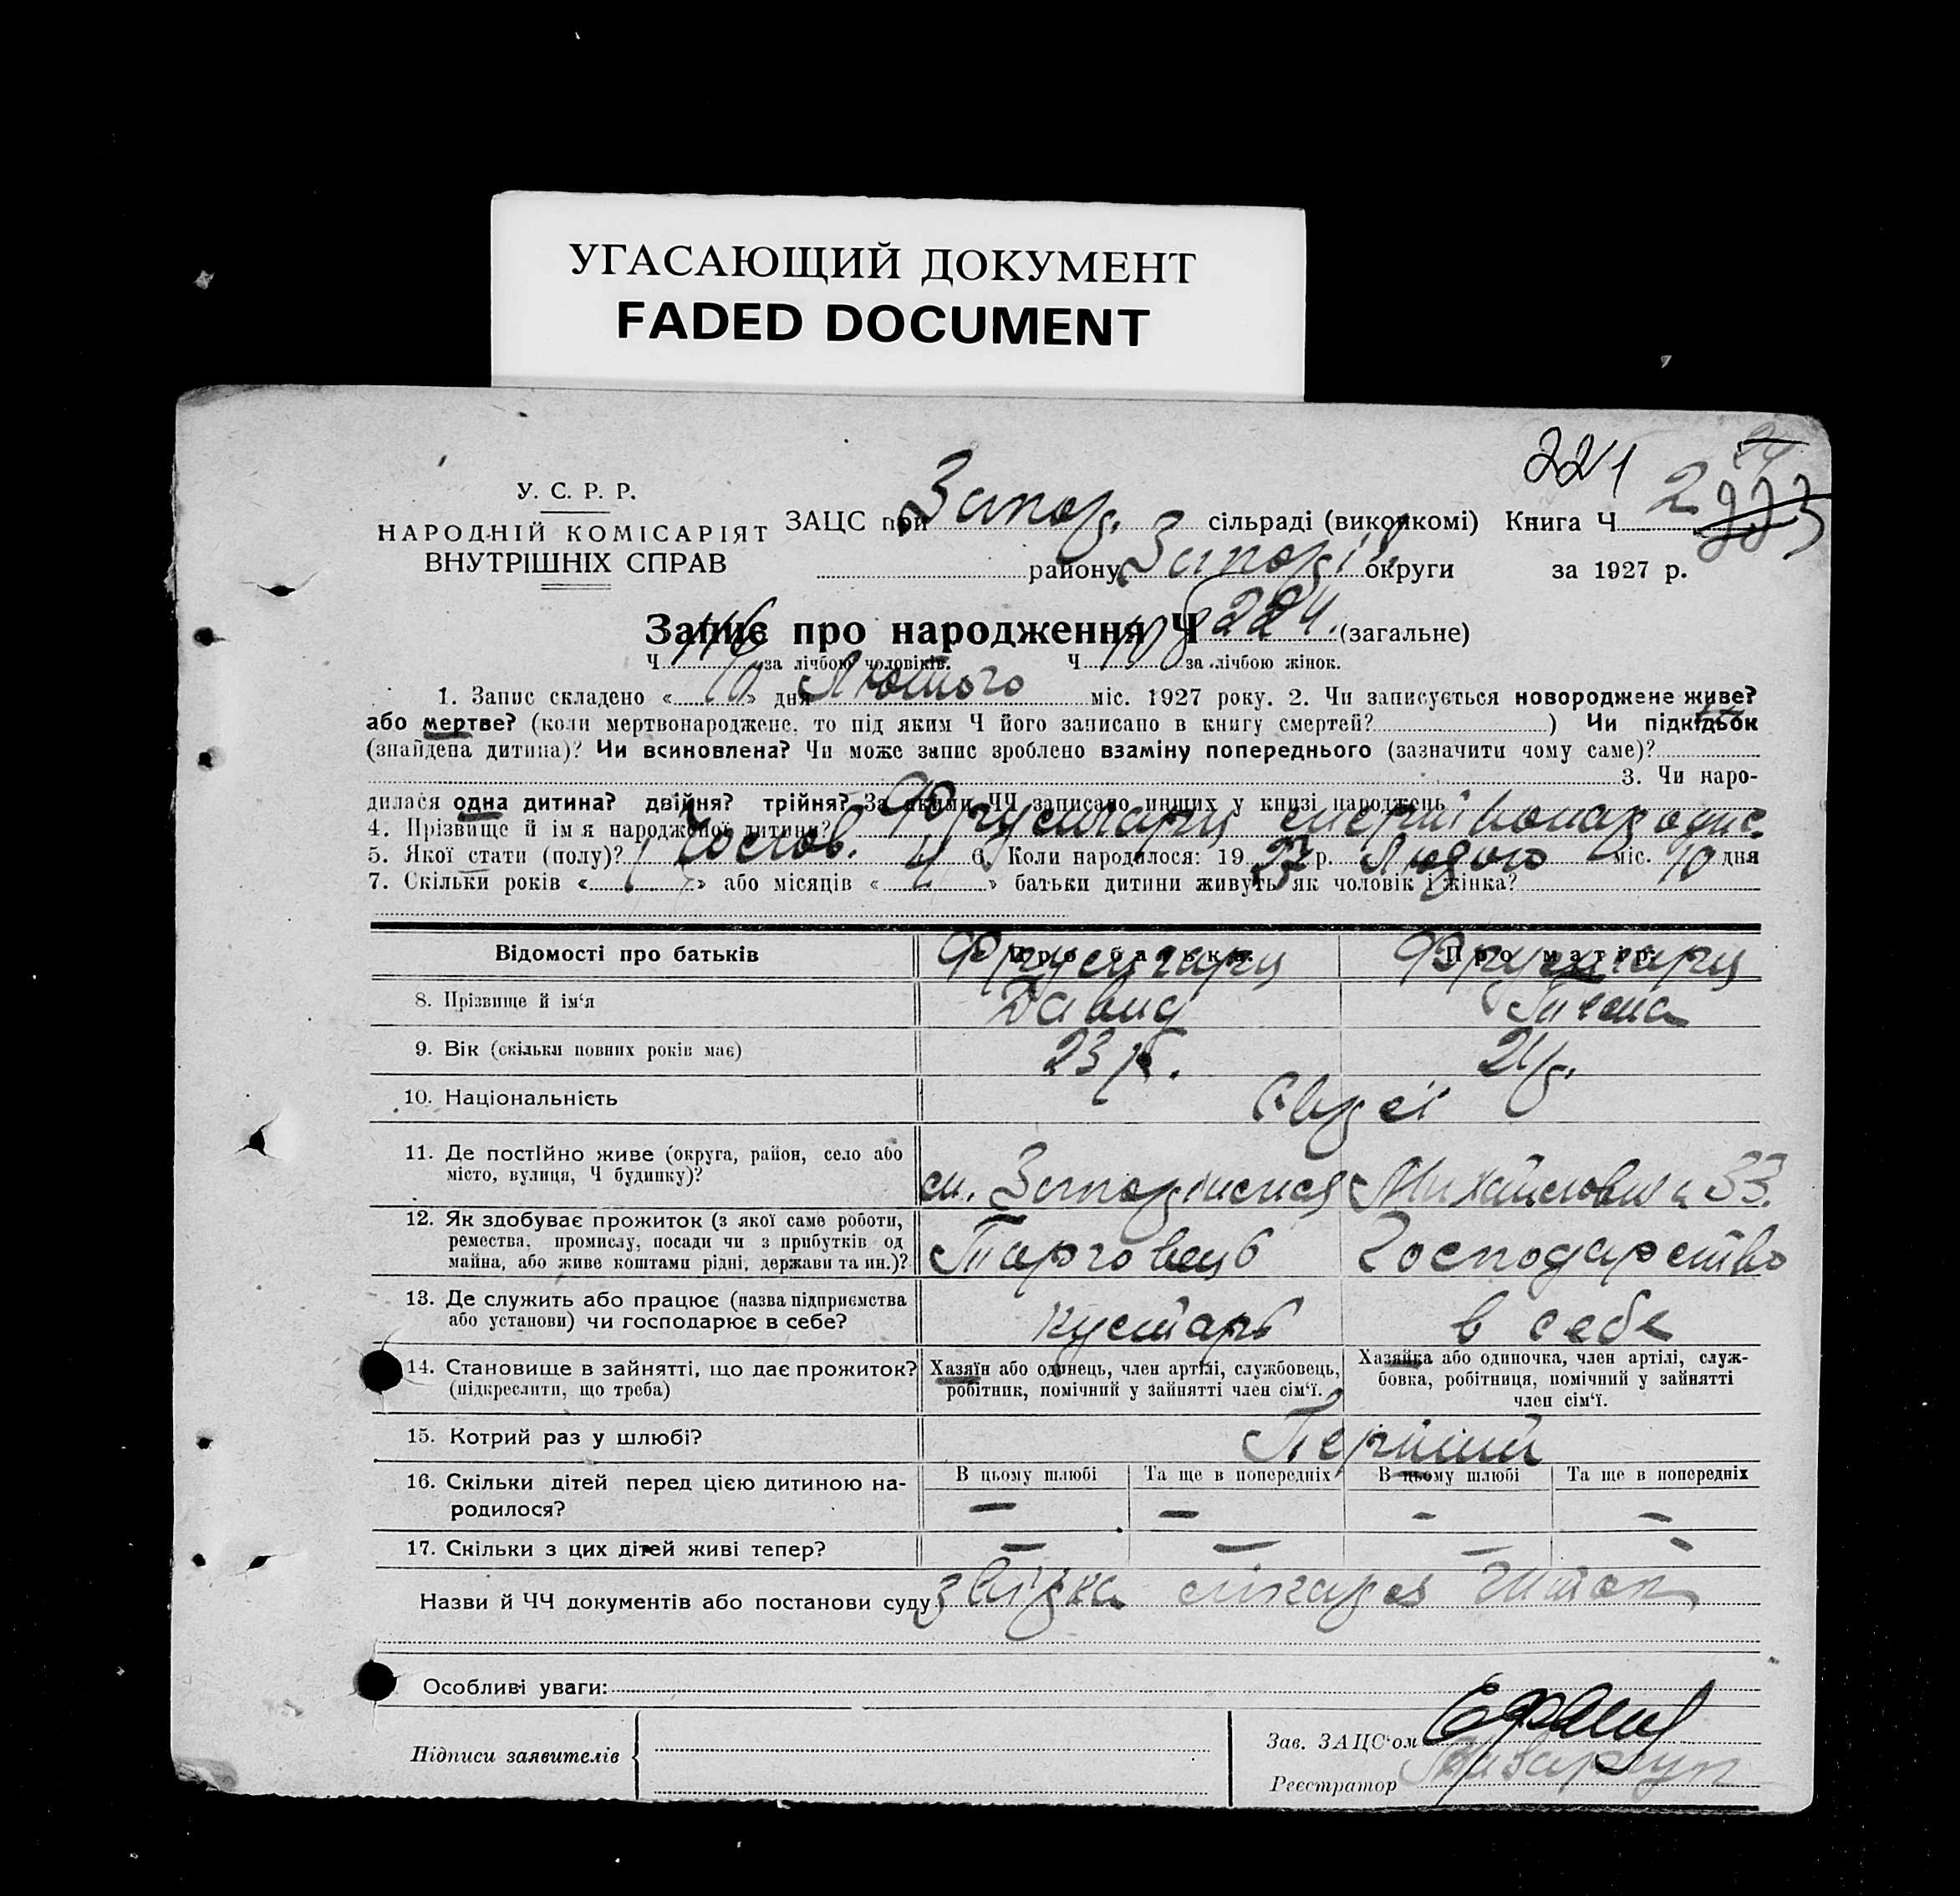 УГАСАЮЩИЙ ДОКУМЕНТ
FADED DOCUMENT
221
У. С. Р. Р.
НАРОДНІЙ КОМІСАРІЯТ
ВНУТРІШНІХ СПРАВ
ЗАЦС при Запор. сільраді (виконкомі) Книга Ч 2
району Запорі округи за 1927 р.
Запис про народження Ч 224. (загальне)
Ч 116 за лічбою чоловіків. Ч 108 за лічбою жінок.
1. Запис складено « 16 » дня Лютого міс. 1927 року. 2. Чи записується новороджене живе?
або мертве? (коли мертвонароджене, то під яким Ч його записано в книгу смертей? ) Чи підкідьок
(знайдена дитина)? Чи всиновлена? Чи може запис зроблено взаміну попереднього (зазначити чому саме)?
3. Чи наро-
дилася одна дитина? двійня? трійня? За якими ЧЧ записано инших у книзі народжень
4. Прізвище й ім'я народженої дитини?
5. Якої стати (полу)? Чослов. 6. Коли народилося: 1927 р. Лютого міс. 10 дня
7. Скільки років « 1 » або місяців « » батьки дитини живуть як чоловік і жінка?
Відомості про батьків Про батька. Про матір.
8. Прізвище й ім'я Давид
9. Вік (скільки повних років має) 23 р. 21 р.
10. Національність Євреї
11. Де постійно живе (округа, район, село або
місто, вулиця, Ч будинку)? 33.
12. Як здобуває прожиток (з якої саме роботи,
ремества, промислу, посади чи з прибутків од
майна, або живе коштами рідні, держави та ин.)? Торговець Господарство
13. Де служить або працює (назва підприємства
або установи) чи господарює в себе? кустарь в себе
14. Становище в зайнятті, що дає прожиток?
(підкреслити, що треба)
Хазяїн або одинець, член артілі, службовець,
робітник, помічний у зайнятті член сім'ї.
Хазяйка або одиночка, член артілі, служ-
бовка, робітниця, помічний у зайнятті
член сім'ї.
15. Котрий раз у шлюбі? Перший
16. Скільки дітей перед цією дитиною на-
родилося?
В цьому шлюбі Та ще в попередніх В цьому шлюбі Та ще в попередніх
— — - -
17. Скільки з цих дітей живі тепер? — — — -
Назви й ЧЧ документів або постанови суду
Особливі уваги:
Підписи заявителів
Зав. ЗАЦС'ом
Реєстратор